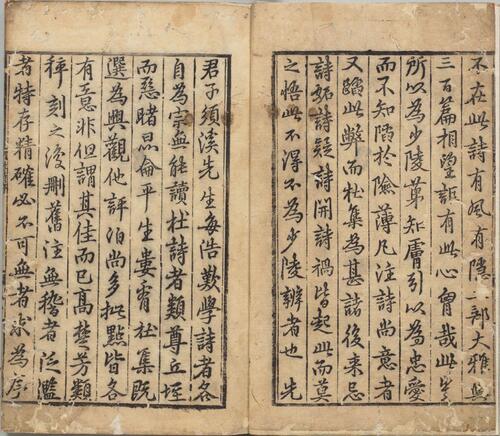 不在此詩有風有隱一部大雅與
三百篇相望詎有此心胷哉此等
所以為少陵第知膚引以為忠愛
而不知陷於險薄凡注詩尚意者
又蹈此弊而杜集為甚諸後來忌
詩妬詩疑詩開詩禍皆起此而莫
之悟此不得不為少陵辨者也先
君子須溪先生每浩歎學詩者各
自為宗無能讀杜詩者類尊丘垤
而惡睹崑侖平生屢看杜集既
選為興觀他評泊尚多批點皆各
有意非但謂其佳而已高楚芳類
稡刻之後刪舊注無稽者泛濫
者特存精確必不可無者求為序